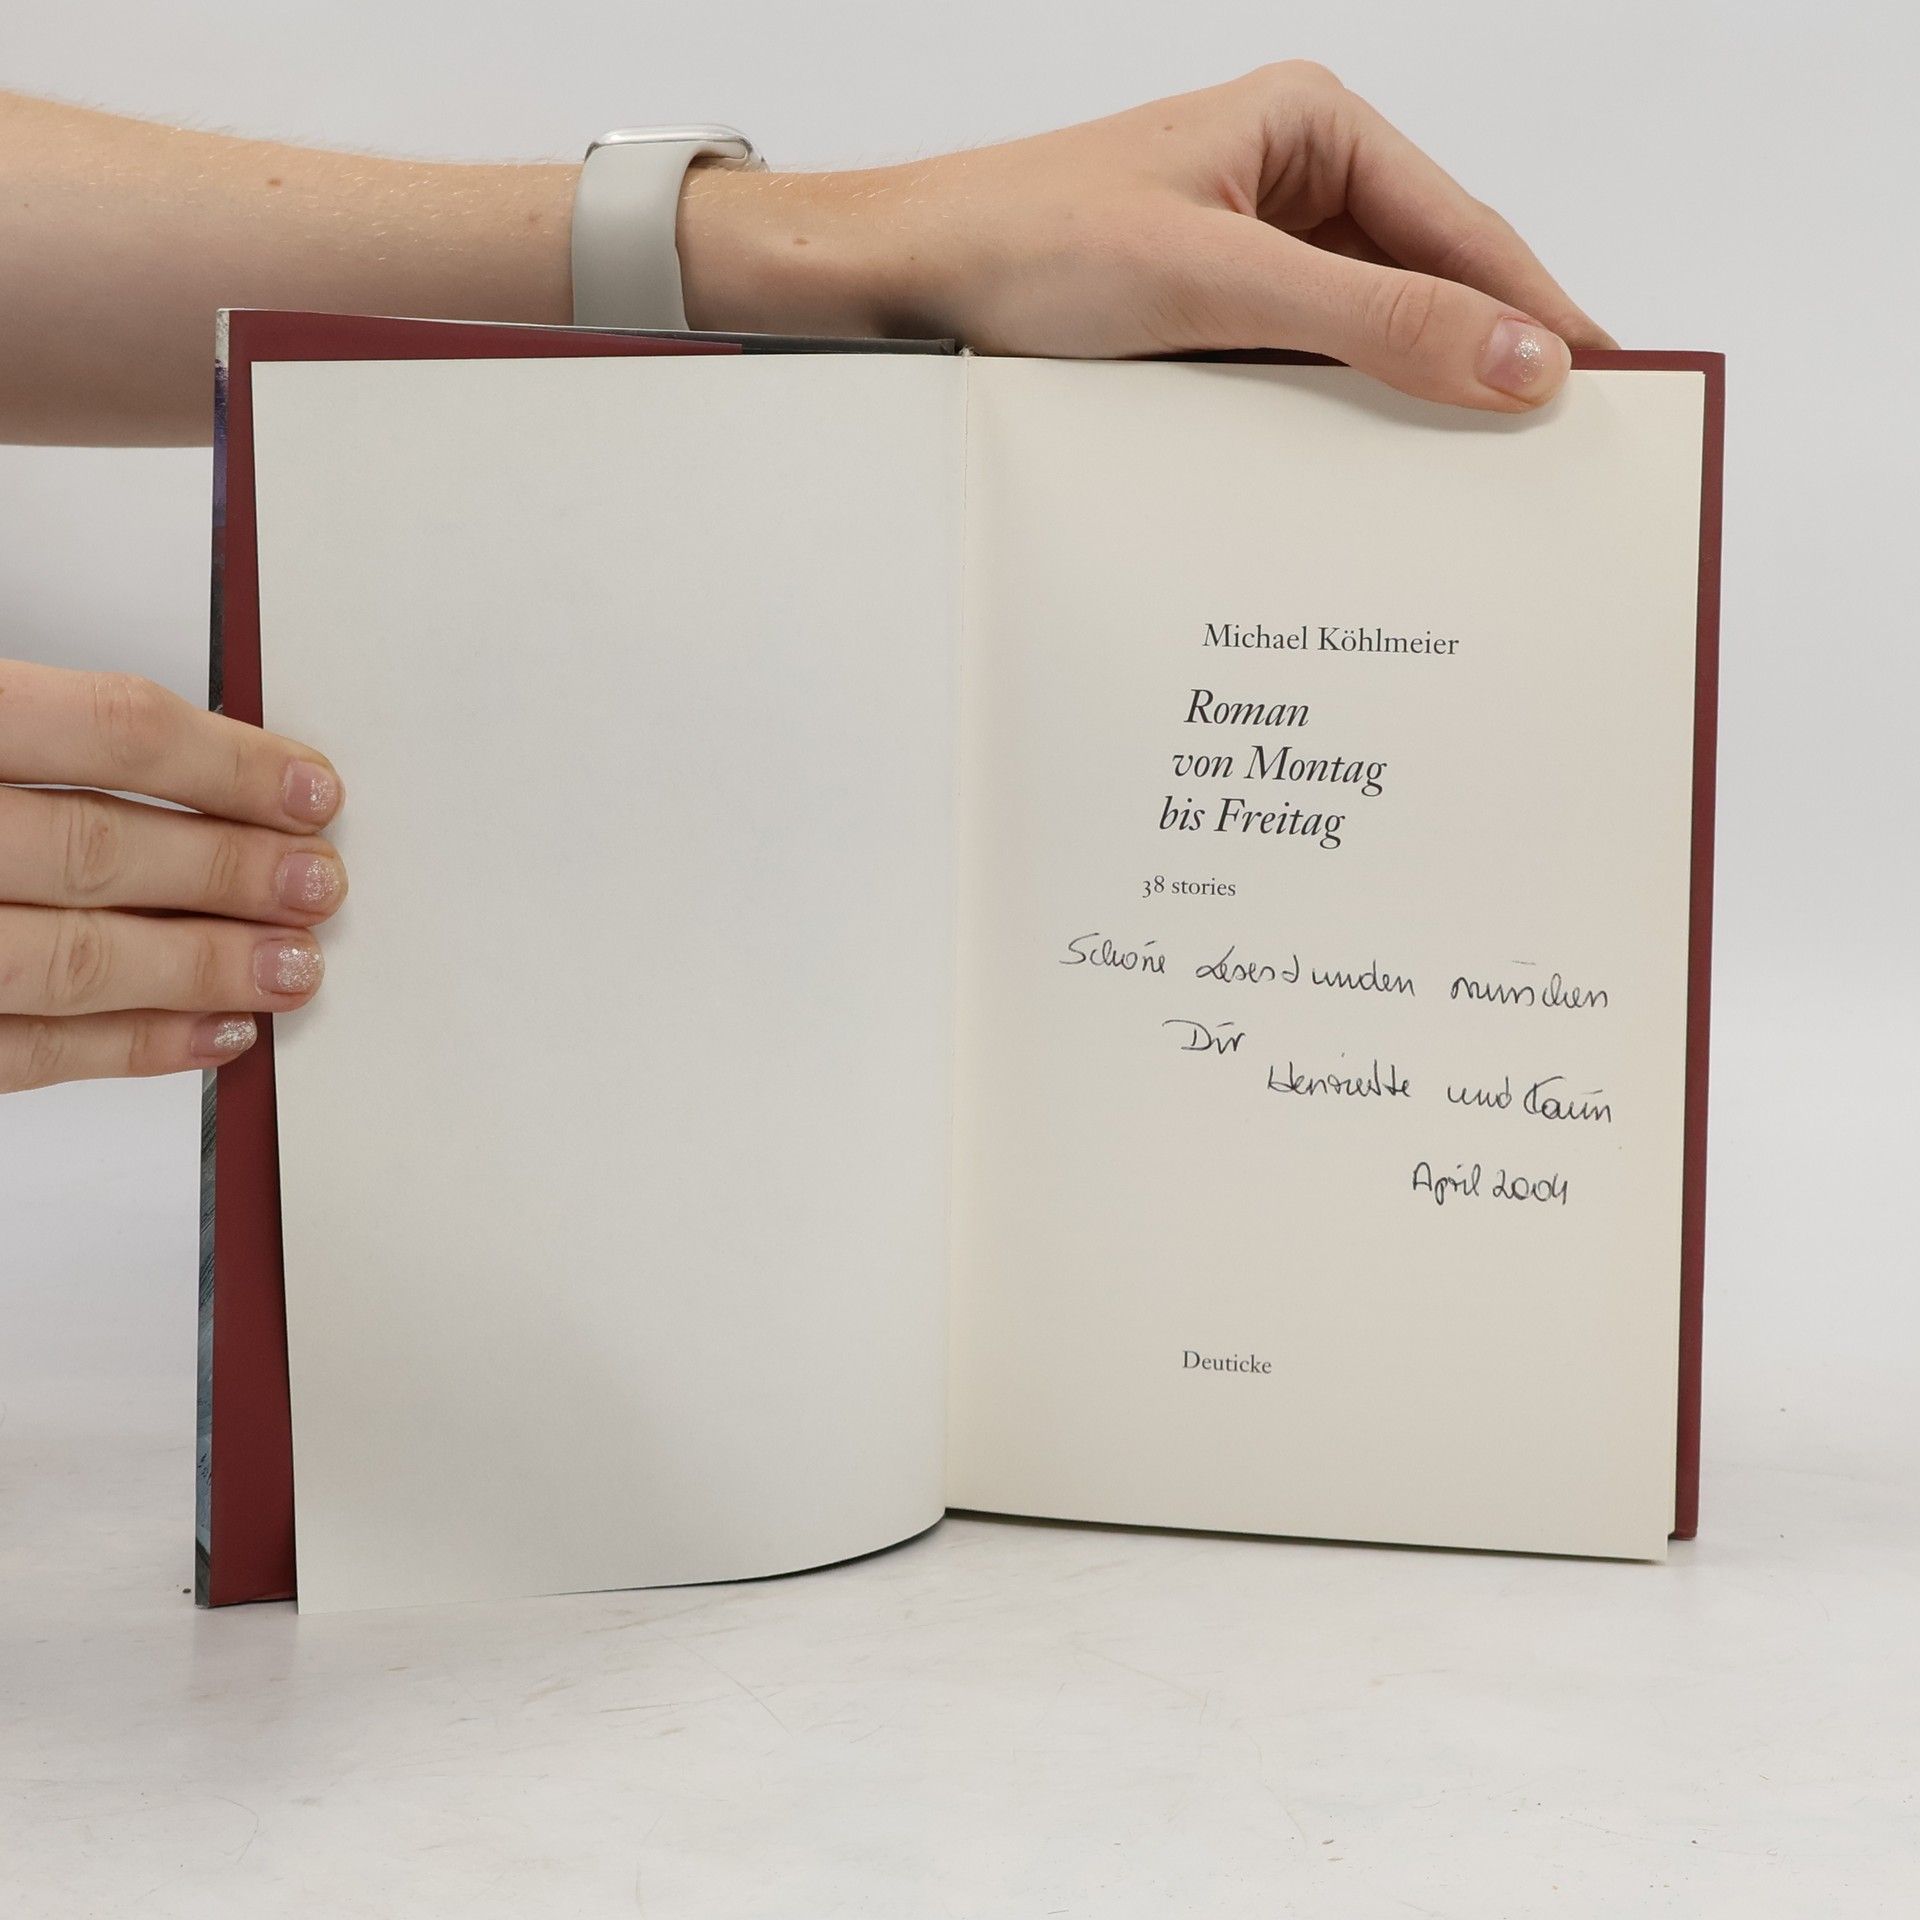 Michael Köhlmeier
Roman
von Montag
bis Freitag
38 stories
Schöne Lesestunden wünschen
Dir
Henriette und
April 2004
Deuticke